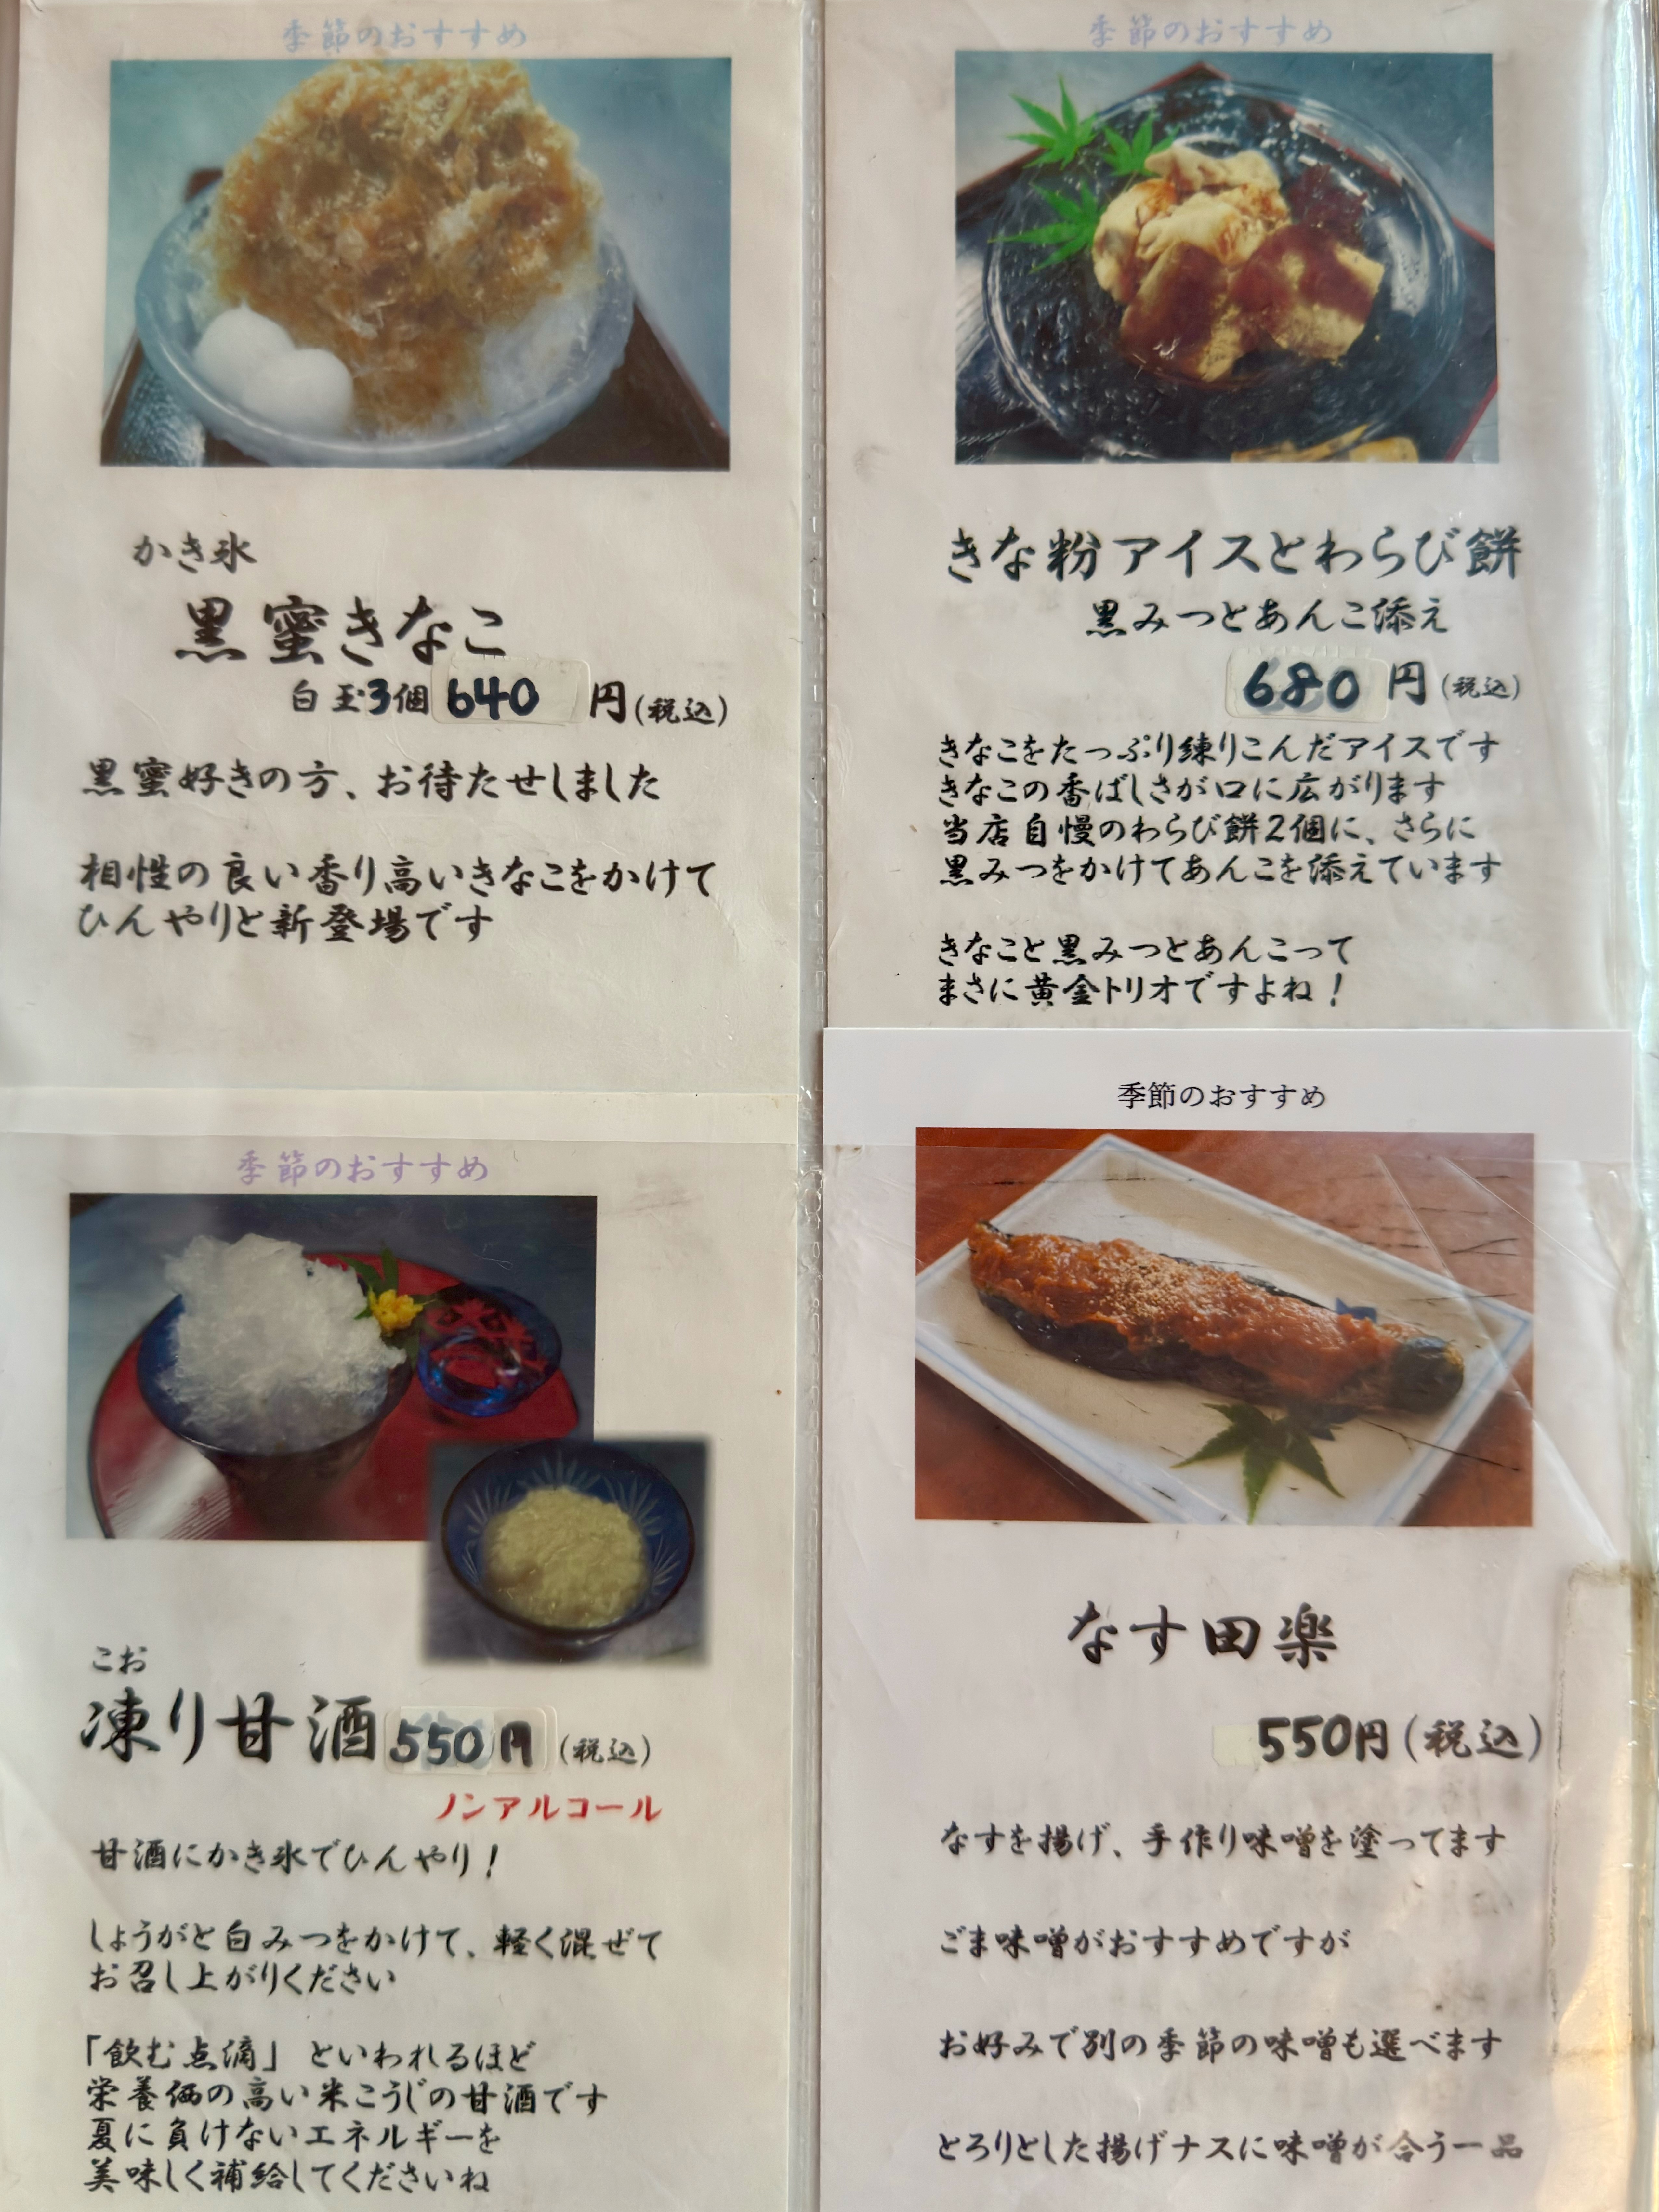 季節のおすすめ
かき氷
黒蜜きなこ
白玉3個 640円(税込)
黒蜜好きの方、お待たせしました
相性の良い香り高いきなこをかけて
ひんやりと新登場です
季節のおすすめ
きな粉アイスとわらび餅
黒みつとあんこ添え
680円(税込)
きなこをたっぷり練りこんだアイスです
きなこの香ばしさが口に広がります
当店自慢のわらび餅2個に、さらに
黒みつをかけてあんこを添えています
きなこと黒みつとあんこって
まさに黄金トリオですよね!
季節のおすすめ
こお
凍り甘酒 550円(税込)
ノンアルコール
甘酒にかき氷でひんやり!
しょうがと白みつをかけて、軽く混ぜて
お召し上がりください
「飲む点滴」といわれるほど
栄養価の高い米こうじの甘酒です
夏に負けないエネルギーを
美味しく補給してくださいね
季節のおすすめ
なす田楽
550円(税込)
なすを揚げ、手作り味噌を塗ってます
ごま味噌がおすすめですが
お好みで別の季節の味噌も選べます
とろりとした揚げナスに味噌が合う一品